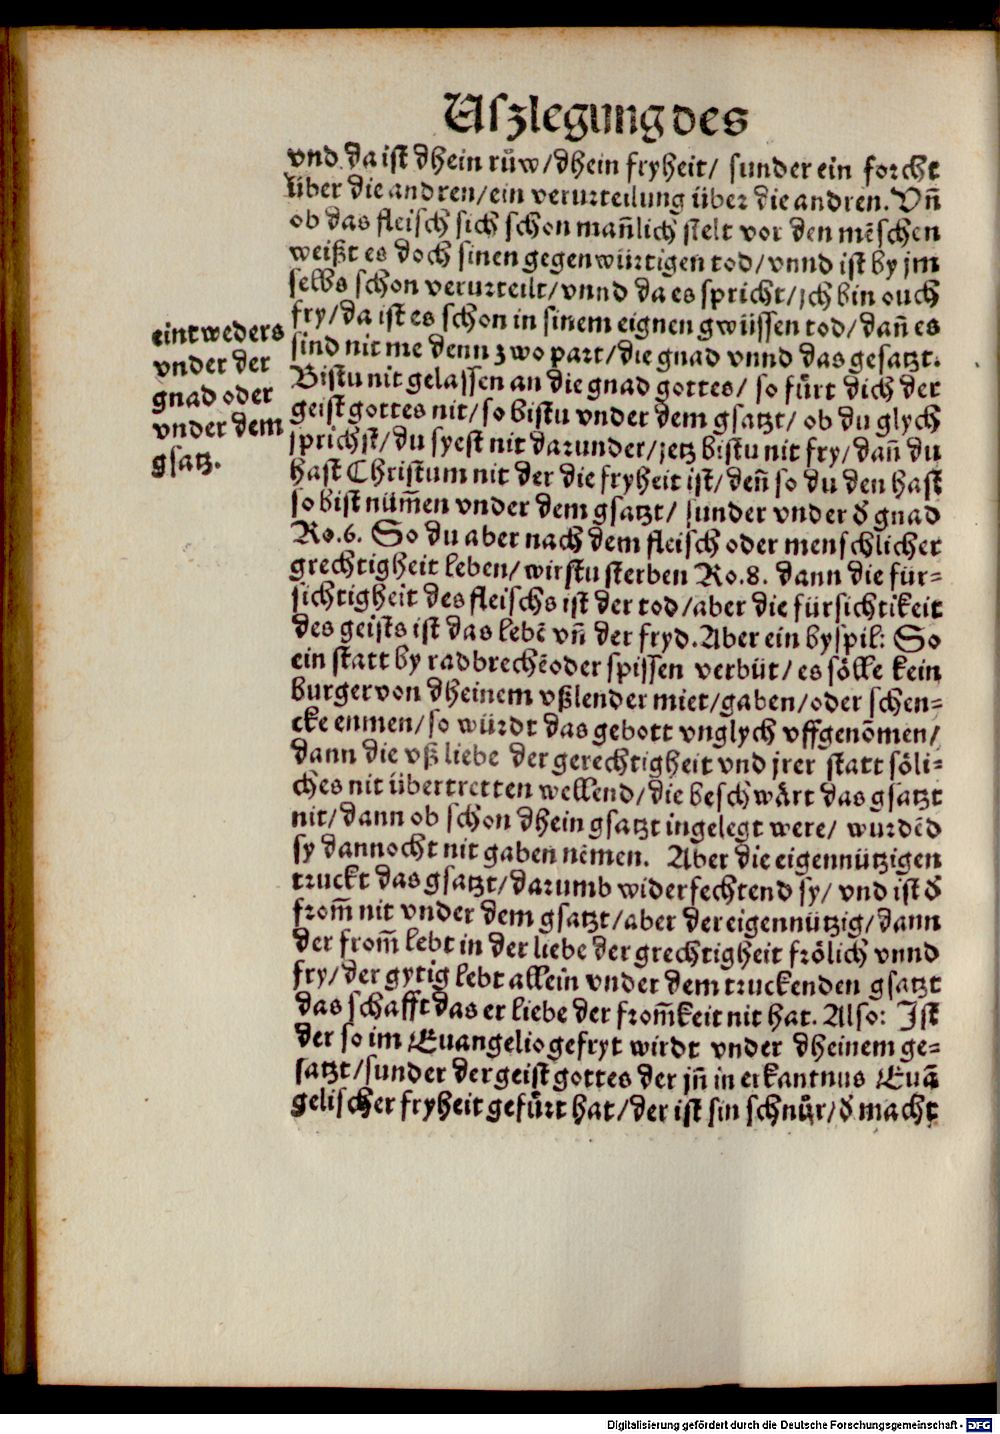 Uſzlegung des
vnd da iſt dhein růw/dhein fryheit/ ſunder ein forcht
über die andren/ein verurteilung über die andren. Vn̄
ob das fleiſch ſich ſchon man̄lich ſtelt vor den mēſchen
weißt es doch ſinen gegenwürtigen tod/vnnd iſt by jm
ſelbs ſchon verurteilt/vnnd da es ſpricht/jch bin ouch
fry/da iſt es ſchon in ſinem eignen gwüſſen tod/dan̄ es
ſind nit me denn zwo part/die gnad vnnd das geſatzt.
Biſtu nit gelaſſen an die gnad gottes/ ſo fürt dich der
geiſt gottes nit/ſo biſtu vnder dem gſatzt/ ob du glych
ſprichſt/du ſyeſt nit darunder/jetz biſtu nit fry/dan̄ du
haſt Chriſtum nit der die fryheit iſt/den̄ ſo du den haſt
ſo biſt nüm̄en vnder dem gſatzt/ ſunder vnder d̕ gnad
Ro.6. So du aber nach dem fleiſch oder menſchlicher
grechtigheit leben/wirſtu ſterben Ro.8. dann die für-
ſichtigheit des fleiſchs iſt der tod/aber die fürſichtikeit
des geiſts iſt das lebē vn̄ der fryd. Aber ein byſpil: So
ein ſtatt by radbrechē oder ſpiſſen verbüt/es ſölle kein
burger von dheinem vßlender miet/gaben/oder ſchen-
cke enmen/ſo würdt das gebott vnglych vffgenōmen/
dann die vß liebe der gerechtigheit vnd jrer ſtatt ſöli-
ches nit übertretten wellend/die beſchwärt das gſatzt
nit/dann ob ſchon dhein gſatzt ingelegt were/ wurdēd
ſy dannocht nit gaben nēmen. Aber die eigennützigen
truckt das gſatzt/darumb widerfechtend ſy/ vnd iſt d̕
from̄ nit vnder dem gſatzt/aber der eigennützig/dann
der from̄ lebt in der liebe der grechtigheit frölich vnnd
fry/der gytig lebt allein vnder dem truckenden gſatzt
das ſchafft das er liebe der from̄keit nit hat. Alſo: Iſt
der ſo im Euangelio gefryt wirdt vnder dheinem ge-
ſatzt/ſunder der geiſt gottes der jn̄ in erkantnus Euā
geliſcher fryheit gefürt hat/der iſt ſin ſchnůr/d̕ macht
eintweders
vnder der
gnad oder
vnder dem
gſatz.
Digitalisierung gefördert durch die Deutsche Forschungsgemeinschaft - DFG